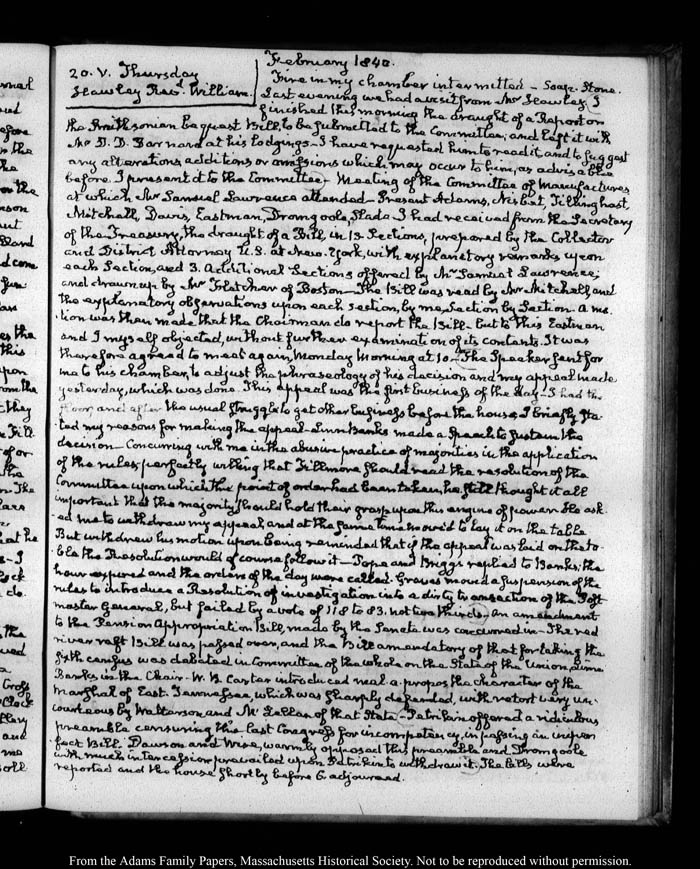 February 1840.
20. V. Thursday
Hawley Revd. William.
Fire in my chamber intermitted - Soap. Stone.
Last evening we had a visit from Mr Hawley. I
finished this morning the draught of a Report on
the Smithsonian bequest Bill, to be submitted to the Committee, and left it with
Mr D. D. Barnard at his lodgings - I have requested him to read it, and to suggest
any alterations, additions or omissions which may occur to him, as advisable
before I present it to the Committee - Meeting of the Committee of Manufactures
at which Mr Samuel Lawrence attended - Present Adams, Nisbet, Tillinghast,
Mitchell, Davis, Eastman, Dromgoole, Slade I had received from the Secretary
of the Treasury, the draught of a Bill, in 13 Sections, prepared by the Collector
and District Attorney U.S. at New-York, with explanatory remarks upon
each Section, and 3. Additional Sections offered by Mr Samuel Lawrence,
and drawn up by Mr Fletcher of Boston - The Bill was read by Mr Mitchell, and
the explanatory observations upon each section, by me, Section by Section. A mo-
tion was then made that the Chairman do report the Bill - but to this Eastman
and I myself objected, without further examination of its contents. It was
therefore agreed to meet again, Monday Morning at 10 - The Speaker sent for
me to his chamber, to adjust the phraseology of his decision and my appeal made
yesterday, which was done. This appeal was the first business of the day - I had the
floor, and after the usual struggle to get other business before the house, I briefly sta-
ted my reasons for making the appeal - Linn Banks made a Speech to sustain the
decision - Concurring with me in the abusive practice of majorities in the application
of the rules, perfectly willing that Fillmore should read the resolution of the
Committee upon which the point of order had been taken, he still thought it all
important that the majority should hold their grasp upon this engine of power. He ask-
ed me to withdraw my appeal, and at the same time mov'd to lay it on the table
But withdrew his motion upon being reminded that if the appeal was laid on the ta-
ble the Resolution would of course follow it - Pope and Briggs replied to Banks; the
hour expired and the orders of the day were called. Graves moved a suspension of the
rules to introduce a Resolution of investigation into a dirty transaction of the Post
master General, but failed by a vote of 118 to 83. not two thirds - An amendment
to the Pension Appropriation Bill, made by the Senate was concurred in - The red
river raft Bill was passed over, and the Bill amendatory of that for taking the
sixth census was debated in Committee of the whole on the State of the Union, Linn
Banks in the Chair - W. B. Carter introduced neal a propos the character of the
Marshal of East. Tennessee, which was sharply defended, with retort very un-
courteous by Watterson and McClellan of that State - Petrikin offered a ridiculous
preamble censuring the last Congress for incompetency, in passing an imper-
fect Bill. Dawson and Wise, warmly opposed this preamble and Dromgoole
with much intercession prevailed upon Petrikin to withdraw it. The bills were
reported and the house shortly before 6 adjourned.
From the Adams Family Papers, Massachusetts Historical Society. Not to be reproduced without permission.